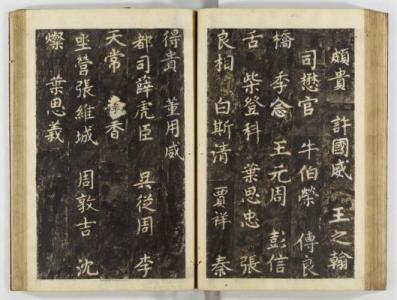 頗貴 許國威 王之翰
司懋官 牛伯榮 傅良
橋 李念 王元周 彭信
舌 柴登科 葉思忠 張
良相 白斯清 賈祥 秦
得貴 董用威
都司薛虎臣 吳從周 李
天常 香
坐營張維城 周敦吉 沈
燦 葉思義